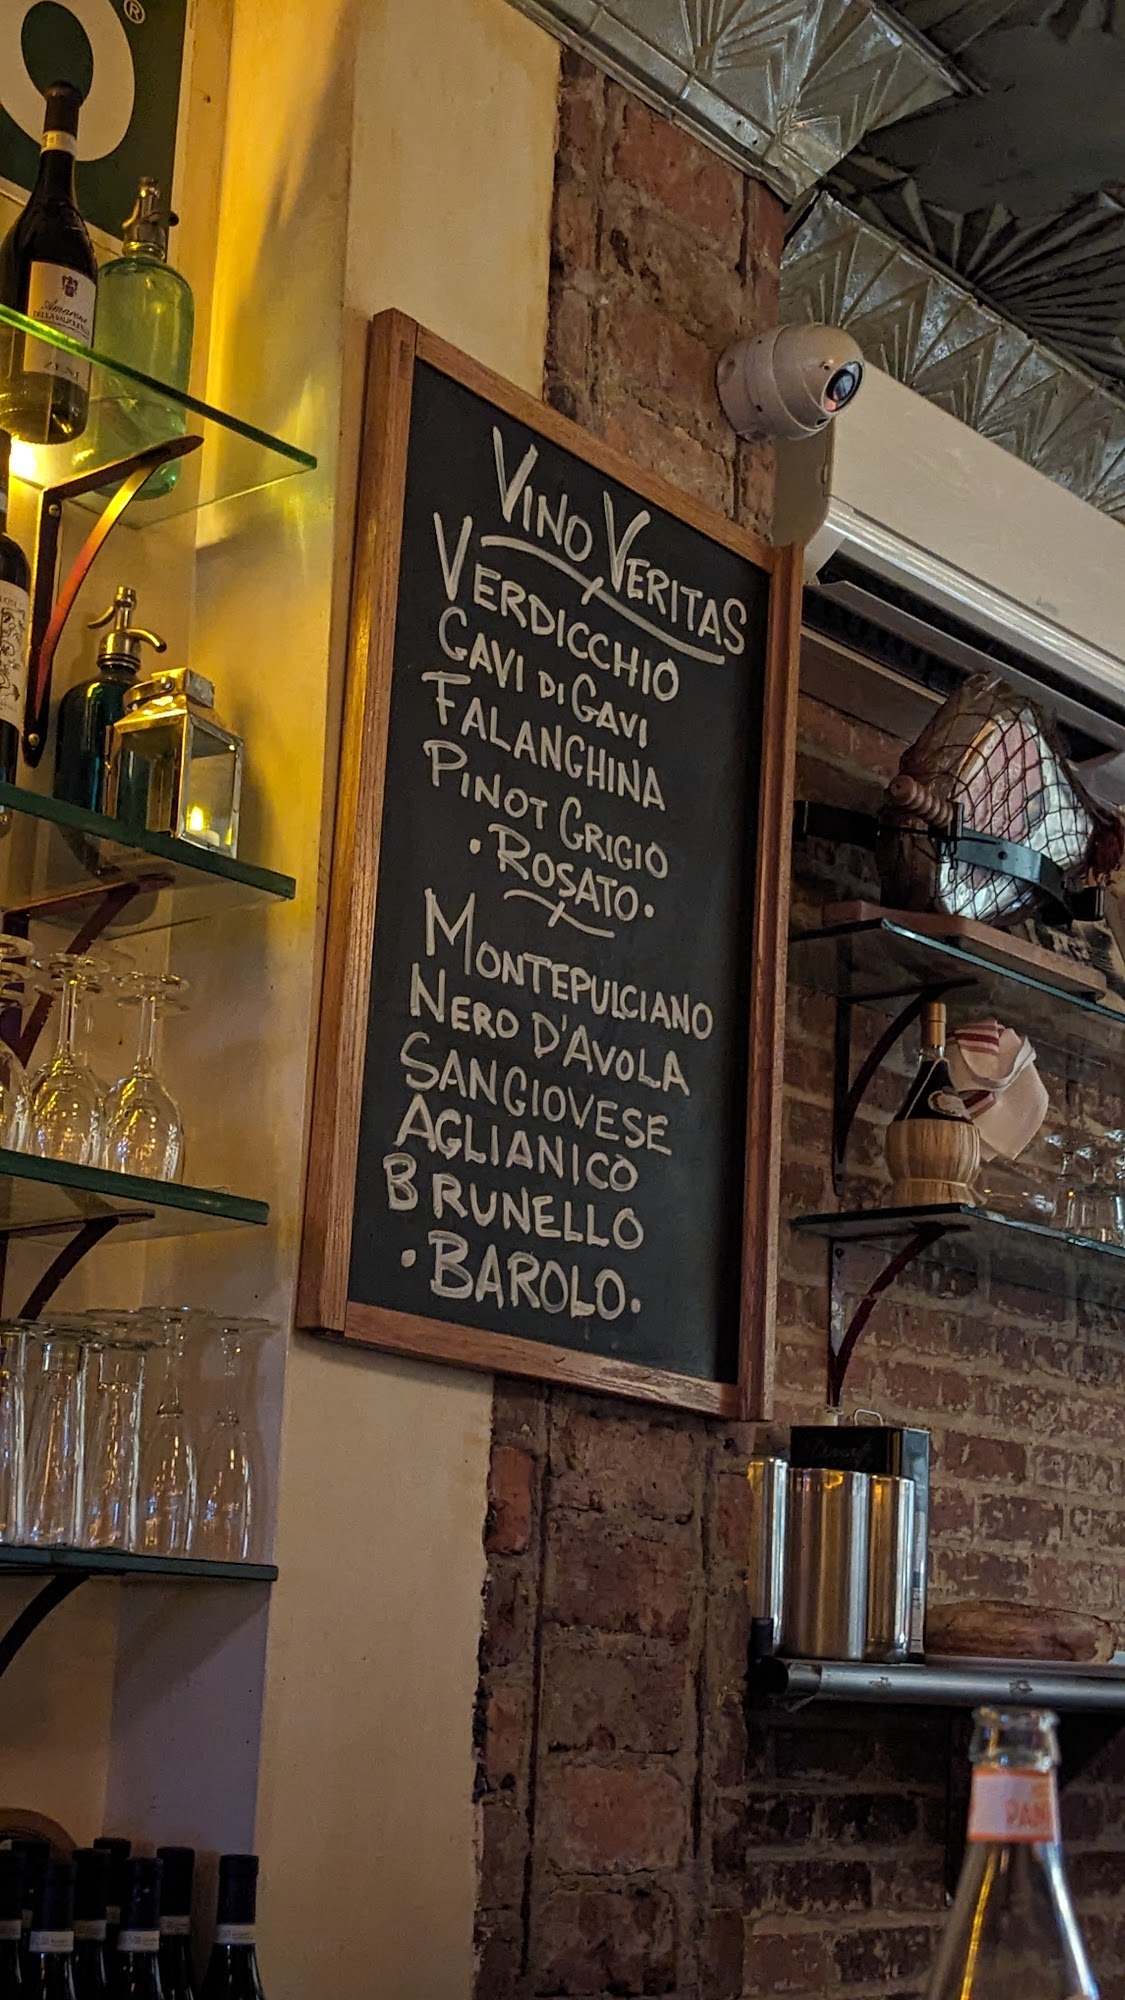 ®
Amarone
DELLA VALPOLICELLA
ZENI
VINO VERITAS
VERDICCHIO
GAVI DI GAVI
FALANGHINA
PINOT GRIGIO
• ROSATO •
MONTEPULCIANO
NERO D'AVOLA
SANGIOVESE
AGLIANICO
BRUNELLO
• BAROLO •
PAN